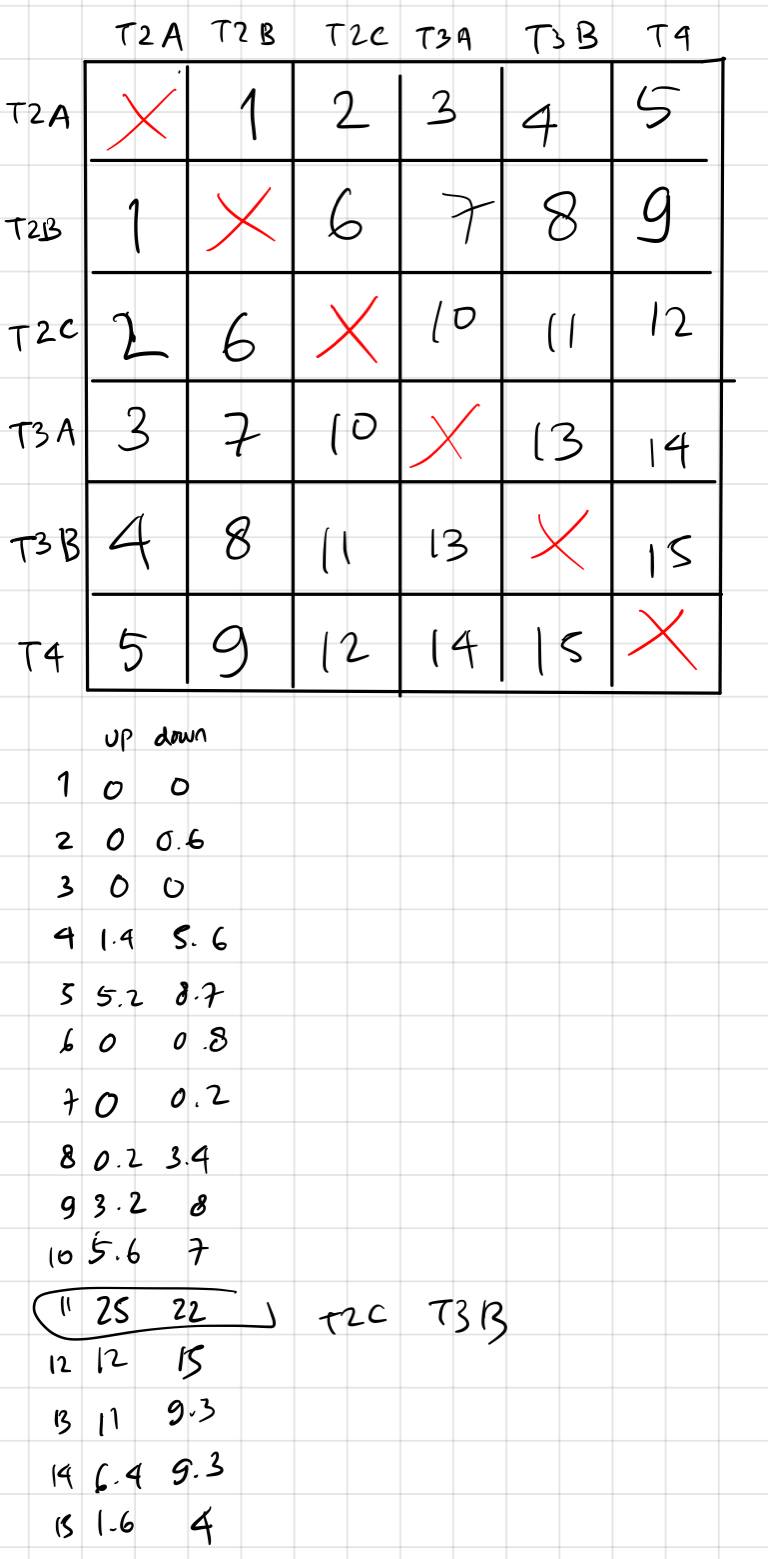 T2A T2B T2C T3A T3B T4
T2A X 1 2 3 4 5
T2B 1 X 6 7 8 9
T2C 2 6 X 10 11 12
T3A 3 7 10 X 13 14
T3B 4 8 11 13 X 15
T4 5 9 12 14 15 X
up down
1 0 0
2 0 0.6
3 0 0
4 1.4 5.6
5 5.2 8.7
6 0 0.8
7 0 0.2
8 0.2 3.4
9 3.2 8
10 5.6 7
11 25 22 T2C T3B
12 12 15
13 11 9.3
14 6.4 9.3
15 1.6 4